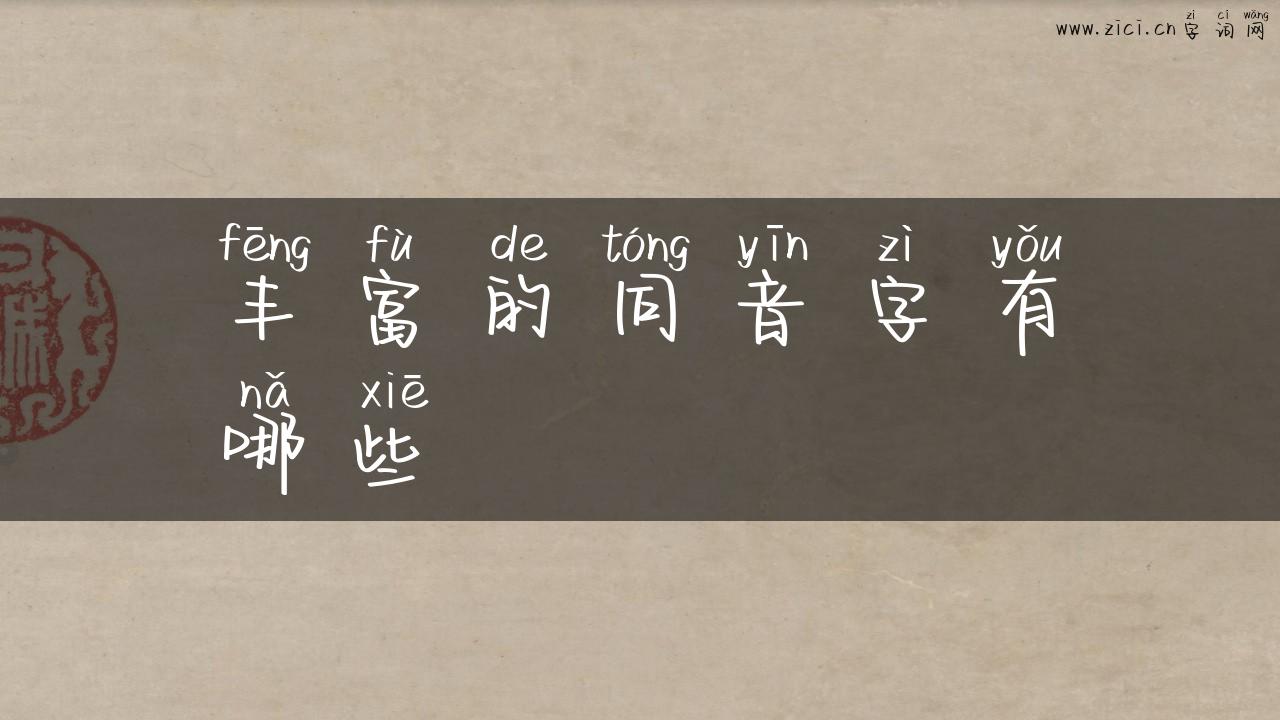 zì cí wǎng
www.zici.cn 字词网
fēng fù de tóng yīn zì yǒu
丰富的同音字有
nǎ xiē
哪些